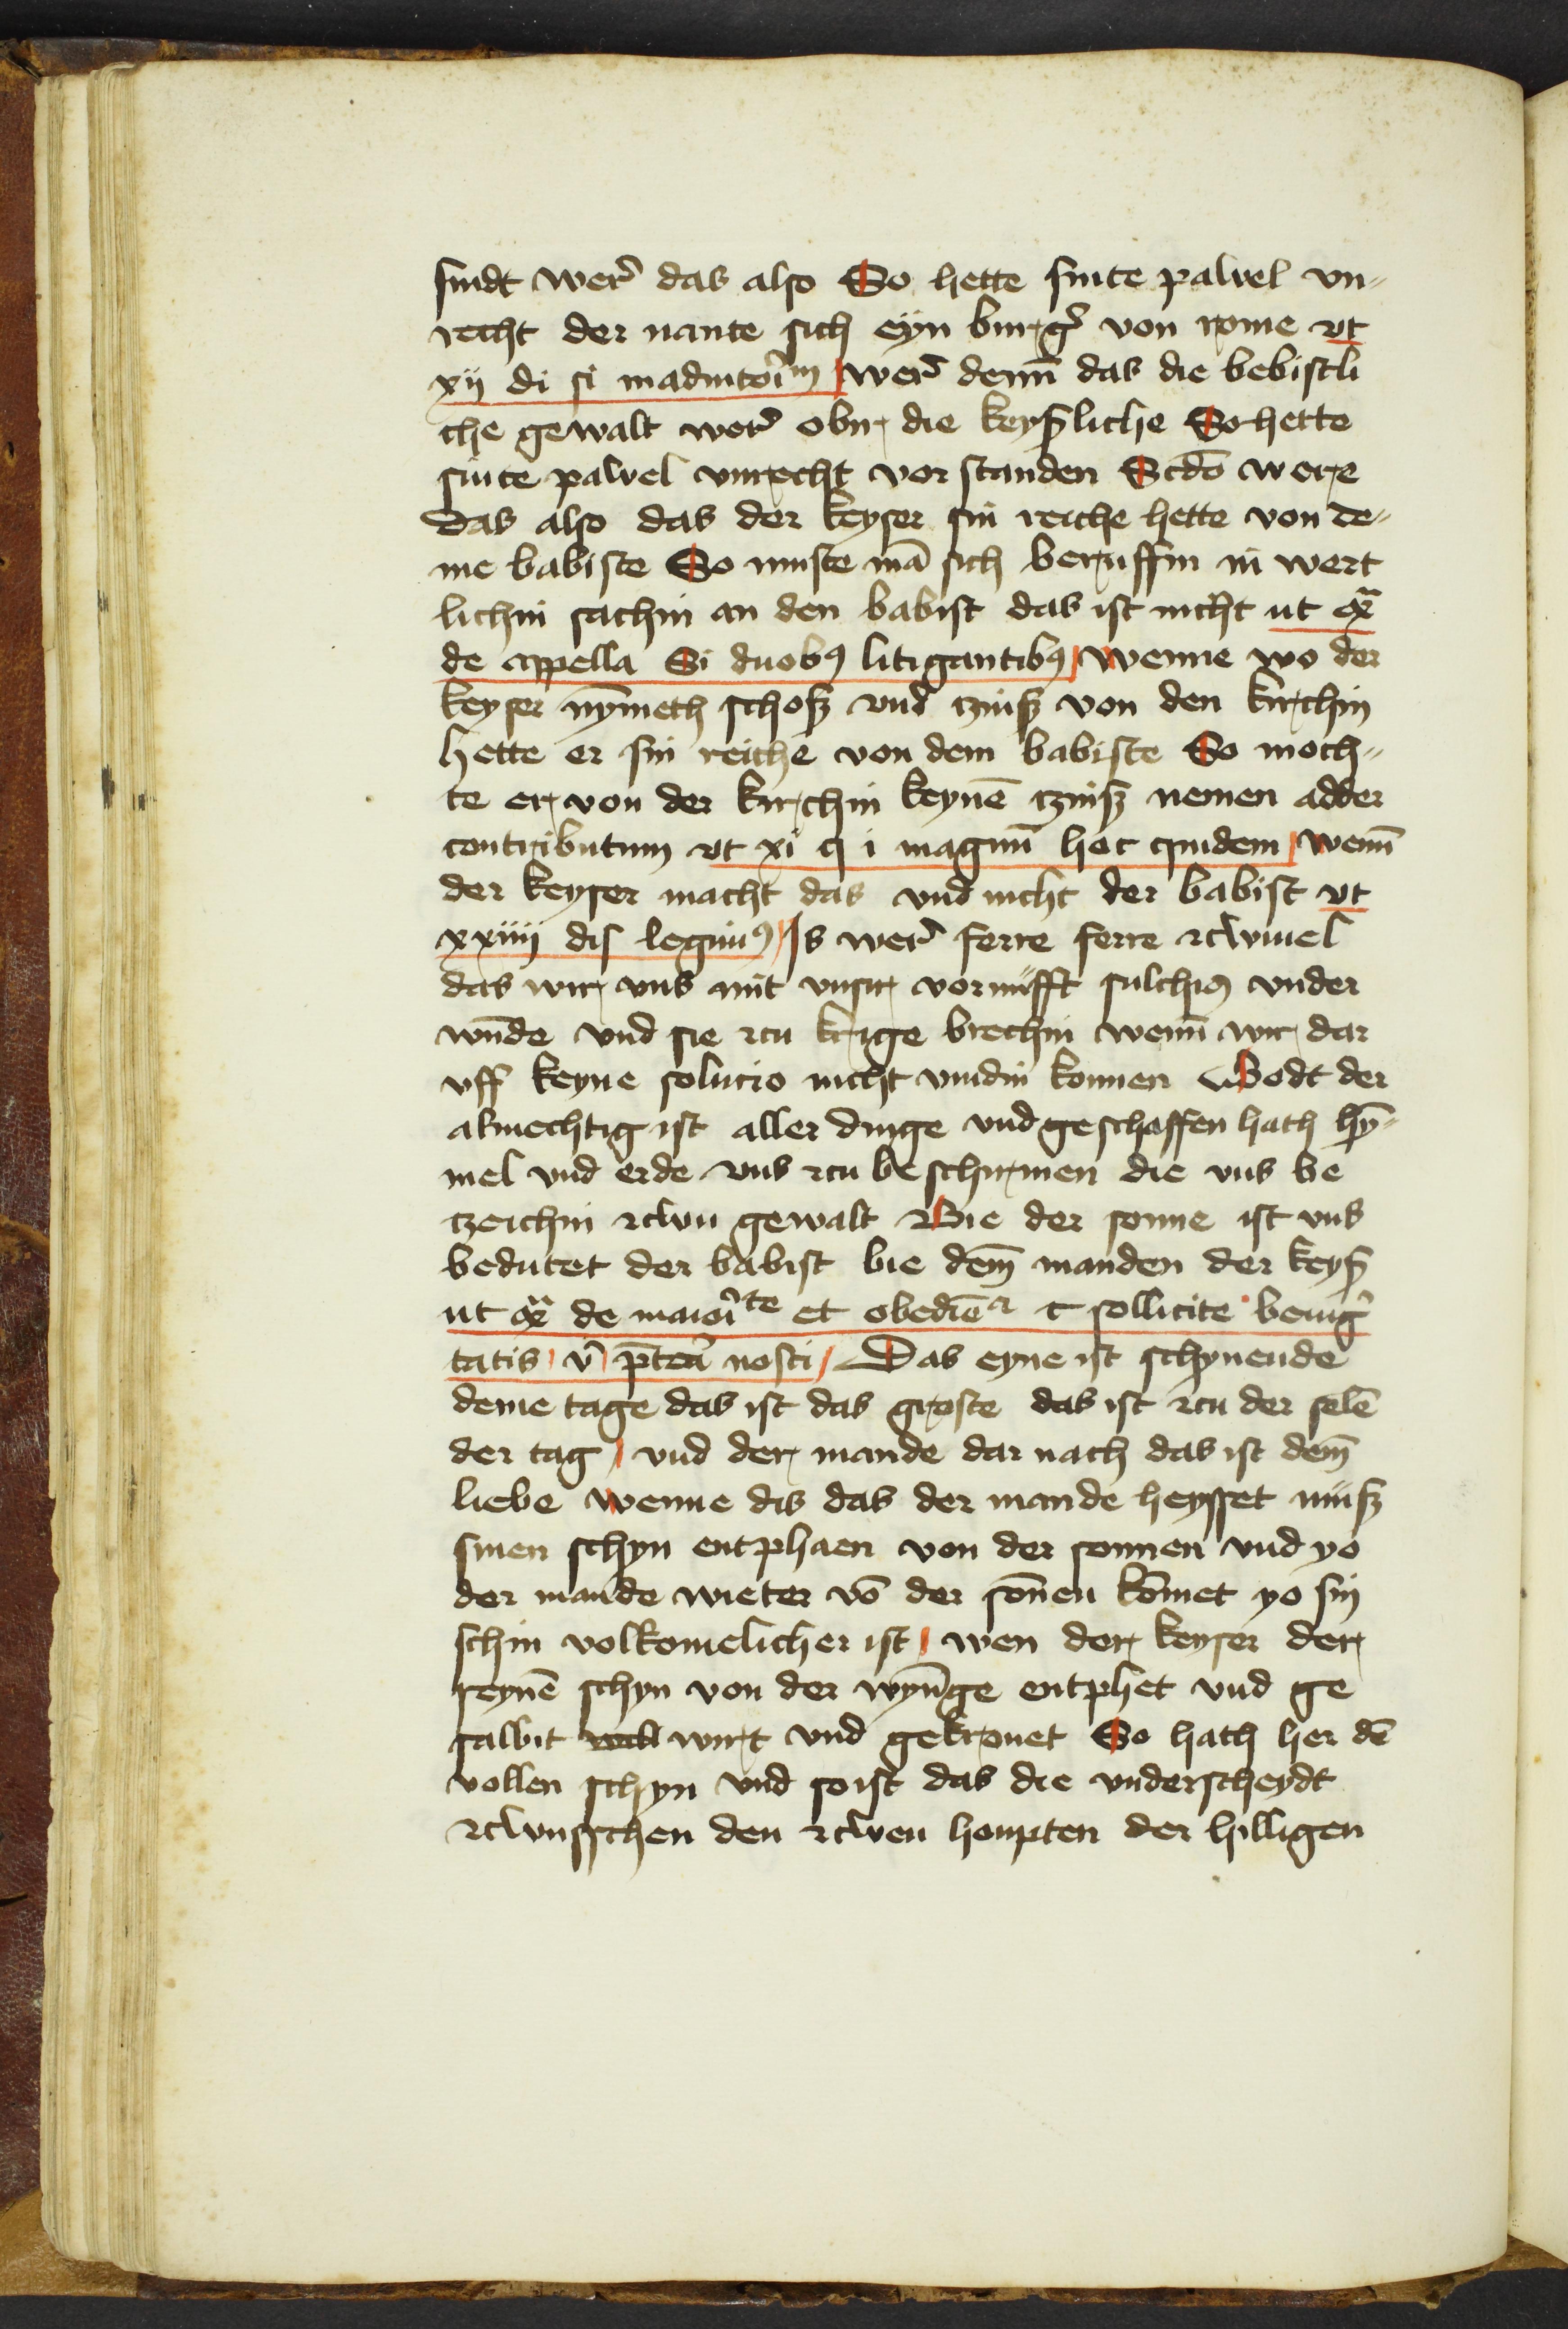 sindt wer᷑ das also So hette sinte pawel vn-
recht der nante sich eyn burg᷑ von rome vt
xij di si inadiutoriū wer᷑ denn̄ das die bebistli
che gewalt wer᷑ obir die keyß᷑liche So hette
sinte pawel vnrecht vor standen Scdō were
das also das der keyser sin reiche hette von de-
me babiste So muste mā sich beruffin in wert
lichin sachin an den babist das ist nicht ut ex̄
de appella Si duobꝯ litigantibꝯ wenne wo der
keyser nȳmeth schoß vnd czinß von den kirchin
hette er sin reiche von dem babiste So moch-
te er von der kirchin keynē czinß nemen adder
contributum vt xi q i magnū hoc quidem wenn̄
der keyser macht das vnd nicht der babist vt
xxiiij dis legimꝯ Is wer᷑ ferre ferre zcwiuel
das wir vns mit vnsir vornūfft sulchis vnder
wūde vnd sie zcu krige brechin wenn̄ wir dar
vff keyne solucio nicht vindin konnen Godt der
almechtig ist aller dinge vnd geschaffen hath hȳ-
mel vnd erde vns zcu beschirmen die vns be
tzeichin zcwu gewalt Bie der sonne ist vns
bedutet der babist bie dem̄ manden der keyß᷑
ut ex̄ de maiorite et obediē c sollicite benig᷑
tatis v᷑ p̄teā nosti Das eyne ist schynende
deme tage das ist das groste das ist zcu der selē
der tag vnd der mande dar nach das ist dem̄
liebe wenne dis das der mande heysset muß
sinen schyn entphaen von der sonnen vnd yo
der mande wieter vō der sōnen kōmet yo sin
schin volkomelicher ist wen der keyser der
seynē schyn von der wyūge entphet vnd ge
salbit wirt vnd gekronet So hath her dē
vollen schyn vnd so ist das die vnderscheydt
zcwusschen den zcwen houpten der hilligen